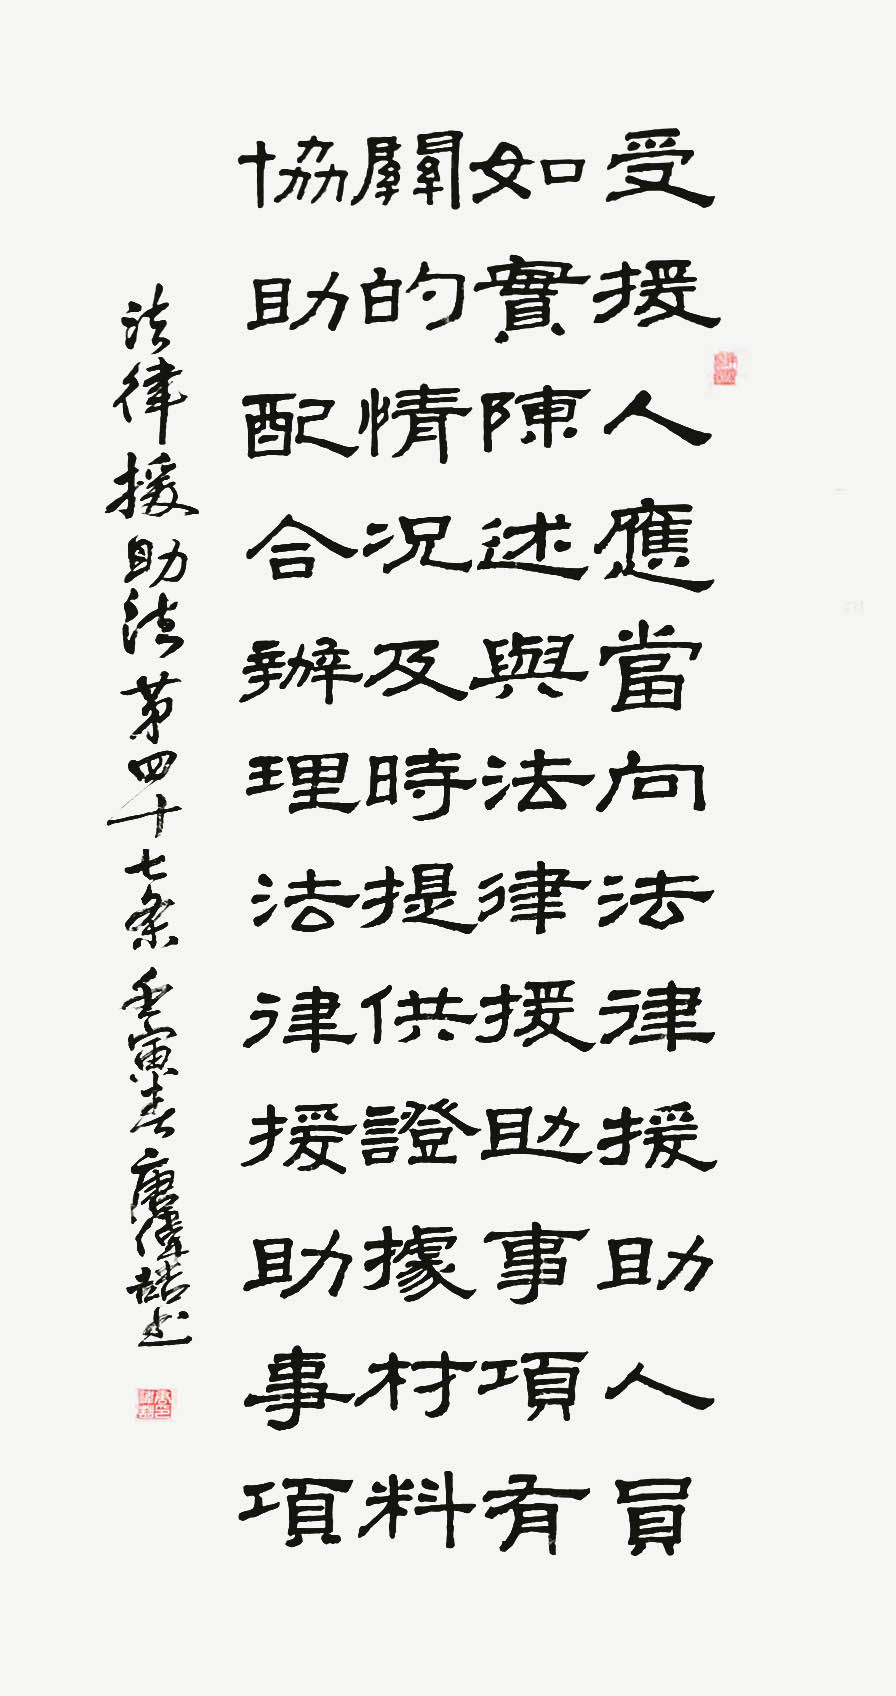 受援人應當向法律援助人員
如實陳述與法律援助事項有
關的情况及時提供證據材料
協助配合辦理法律援助事項
法律援助法第四十七条壬寅春唐偉喆书